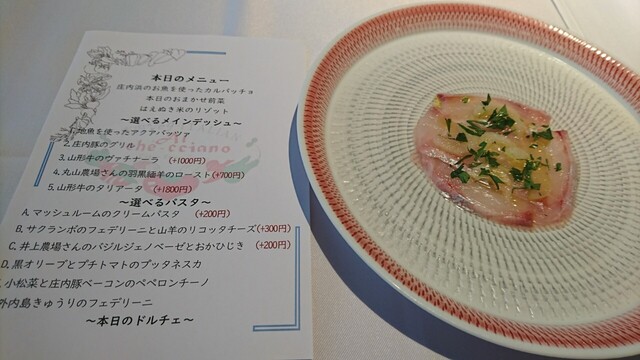 本日のメニュー
庄内浜のお魚を使ったカルパッチョ
本日のおまかせ前菜
はえぬき米のリゾット
～選べるメインデッシュ～
1. 地魚を使ったアクアパッツァ
2. 庄内豚のグリル
3. 山形牛のヴァチナーラ (+1000円)
4. 丸山農場さんの羽黒緬羊のロースト(+700円)
5. 山形牛のタリアータ (+1800円)
～選べるパスタ～
A. マッシュルームのクリームパスタ (+200円)
B. サクランボのフェデリーニと山羊のリコッタチーズ(+300円)
C. 井上農場さんのバジルジェノベーゼとおかひじき (+200円)
D. 黒オリーブとプチトマトのプッタネスカ
小松菜と庄内豚ベーコンのペペロンチーノ
外内島きゅうりのフェデリーニ
～本日のドルチェ～